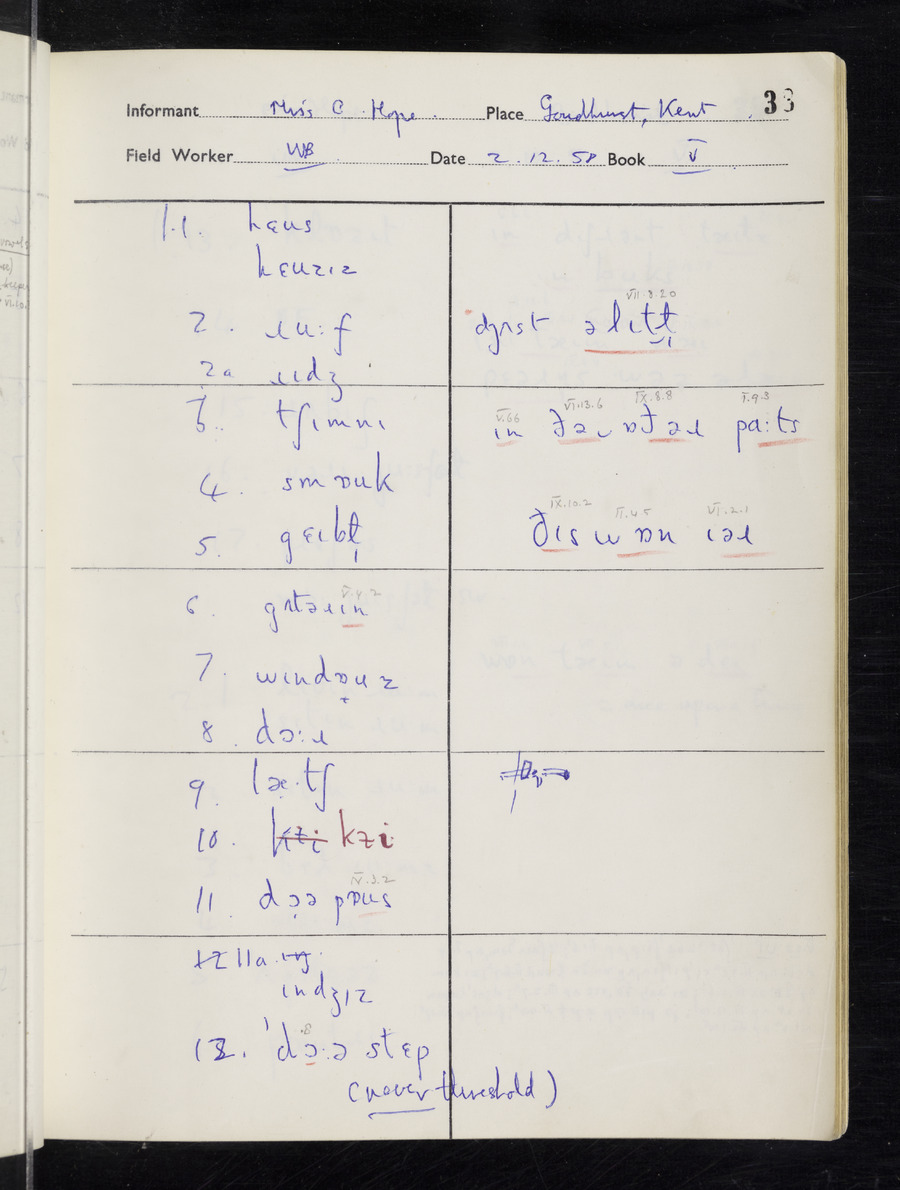 Informant Miss C. Hope. Place Goudhurst, Kent 33
Field Worker WB Date 2.12.58 Book V
1.1. hɛus
hɛuzɪz
2. ɹu:f
2a ɹɪdʒ
3. tʃɪmnɪ
4. smɒuk
5.
6. V.4.2
7. wɪndɒuz
8. dɔ:ɹ
9. læ·tʃ
10. kzi kzi
11. dɔ̣ə pɒus IV.3.2
12 11a.
ɪndʒɪz
12. ˈdɔ:ə stɛp .8
(never threshold)
VII.8.20
dʒʌst ə lɪtɫ̩
V.66 VI.13.6 IX.8.8 I.9.3
ɪn ðə ʌðəɹ pa:ts
IX.10.2 II.4.5 VI.2.1
ðɪs wɒn ɪəɹ